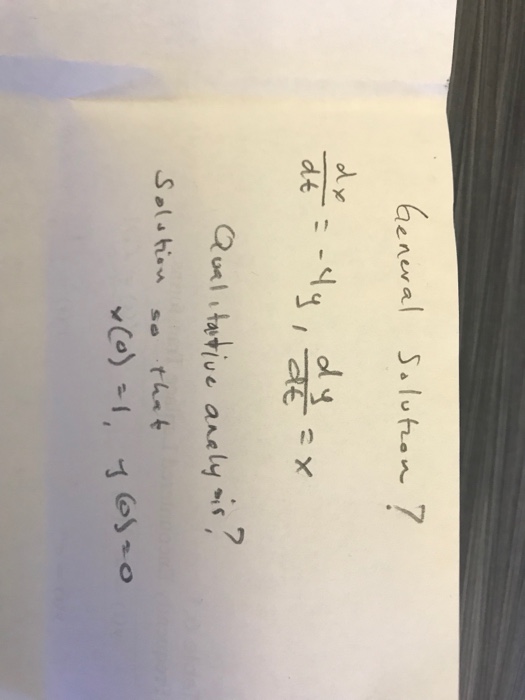 General Solution?
dx/dt = -4y, dy/dt = x
Qualitative analysis?
Solution so that
x(0) = 1, y(0) = 0